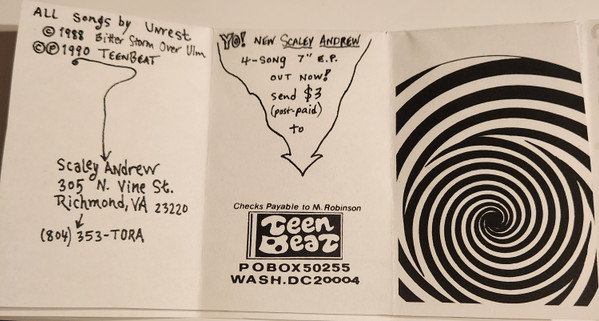 ALL SONGS by Unrest
© 1988 Bitter Storm Over Ulm
©℗1990 TEENBEAT
Scaley Andrew
305 N. Vine St.
Richmond, VA 23220
(804) 353-TORA
YO! NEW SCALEY ANDREW
4-SONG 7" E.P.
OUT NOW!
send $3
(post-paid)
to
Checks Payable to M. Robinson
Teen
Beat
POBOX50255
WASH.DC20004